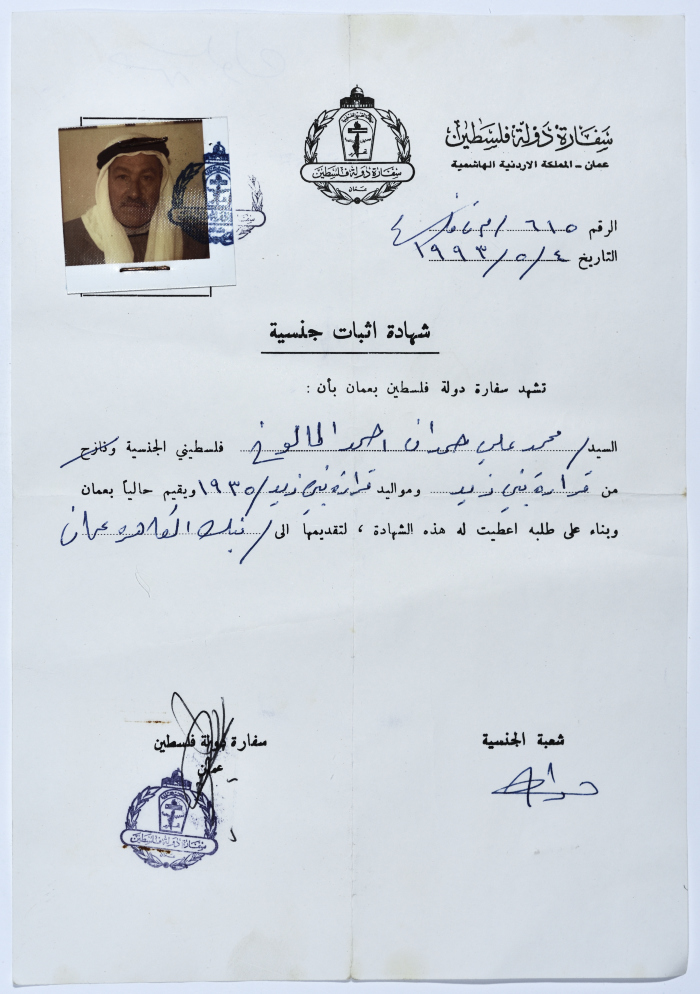 سفارة دولة فلسطين
عمان - المملكة الاردنية الهاشمية
سفارة دولة فلسطين
عمان
الرقم ٦١٥ /
التاريخ ٤ / ٥ / ١٩٩٣
شهادة اثبات جنسية
تشهد سفارة دولة فلسطين بعمان بأن :
السيد / محمد علي حمدان احمد فلسطيني الجنسية ونازح
من قراوة بني زيد ومواليد قراوة بني زيد / ١٩٣٥ ويقيم حالياً بعمان
وبناء على طلبه اعطيت له هذه الشهادة ، لتقديمها الى / بنك القاهره عمان
شعبة الجنسية
سفارة دولة فلسطين
عمان
سفارة دولة فلسطين